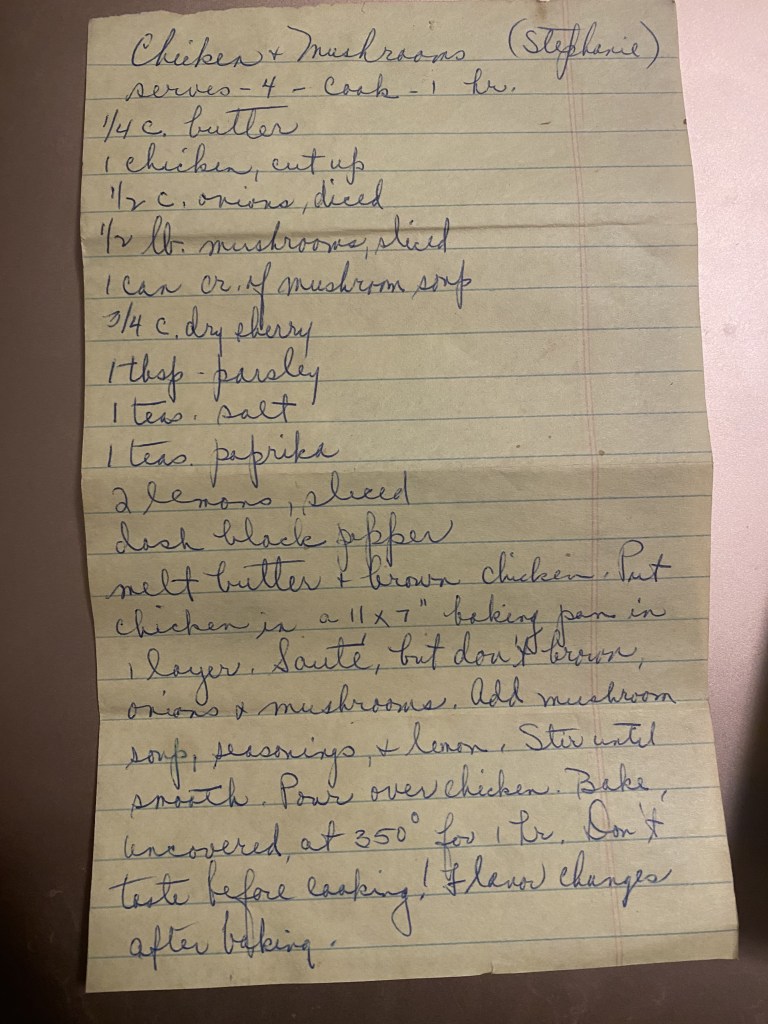 Chicken & Mushrooms (Stephanie)
serves - 4 - Cook - 1 hr.
1/4 c. butter
1 chicken, cut up
1/2 c. onions, diced
1/2 lb. mushrooms, sliced
1 can cr. of mushroom soup
3/4 c. dry sherry
1 tbsp - parsley
1 teas. salt
1 teas. paprika
2 lemons, sliced
dash black pepper
melt butter & brown chicken. Put
chicken in a 11 x 7" baking pan in
1 layer. Sauté, but don't brown,
onions & mushrooms. Add mushroom
soup, seasonings, & lemon. Stir until
smooth. Pour over chicken. Bake,
uncovered, at 350° for 1 hr. Don't
taste before cooking! Flavor changes
after baking.